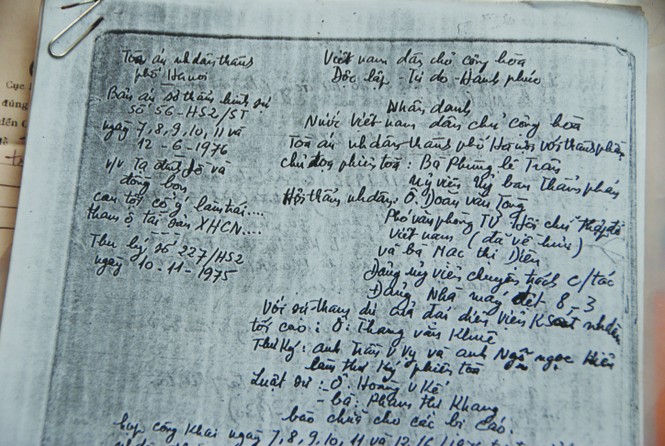 Cục
đúng
đến C
Toà án nhân dân thành
phố Hanoi
Bản án sơ thẩm hình sự
số 56-HS2/ST
ngày 7, 8, 9, 10, 11 và
12-6-1976
v/v Tạ đình Đề và
đồng bọn
can tội cố ý làm trái....
tham ô tài sản XHCN....
Thụ lý số 227/HS2
ngày 10-11-1975
Việt nam dân chủ cộng hòa
Độc lập - Tự do - Hạnh phúc
Nhân danh
Nước Việt nam dân chủ cộng hòa
Toà án nhdân thành phố Hanoi với thành phần
chủ toạ phiên toà: Bà Phùng lê Trân
Uỷ viên Uỷ ban thẩm phán
Hội thẩm nhdân: Ô. Doan văn
Phó văn phòng TƯ Hội chữ thập đỏ
Việt nam (đã về hưu)
và bà Mạc thị Diên
Đảng uỷ viên chuyên trách c/tác
Đảng Nhà máy dệt 8_3
Với sự tham dự của đại diện viện Ksoát nhdân
tối cao: Ô. Thang văn Khuê
Thư ký: anh Trần V Vy và anh Ngô ngọc Hiền
làm thư ký phiên toà
Luật sư: Ô. Hoàng V Kế
- bà: Phạm thị Khang
bào chữa cho các bị cáo.
họp công khai ngày 7, 8, 9, 10, 11 và 12/6/1976